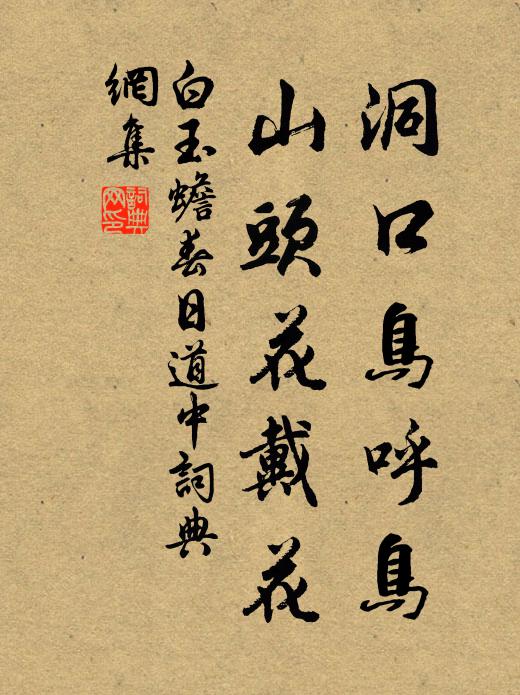 洞口鳥呼鳥
山頭花戴花
白玉蟾春日道中詞典
網集
詞典網印